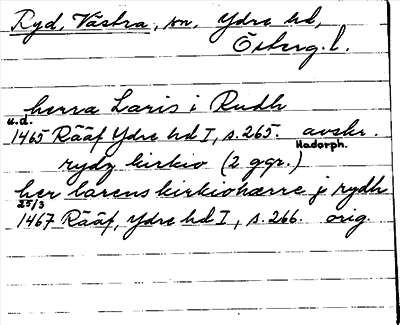 Ryd, Västra, sn, Ydre hd,
Österg. l.
herra Laris i Rudh
u.d.
1465 Rääf Ydre hd I, s. 265. avskr.
Hadorph.
rydz kirkio (2 ggr.)
her larens kirkiohærre j rydh
25/3
1467 Rääf, Ydre hd I, s. 266. orig